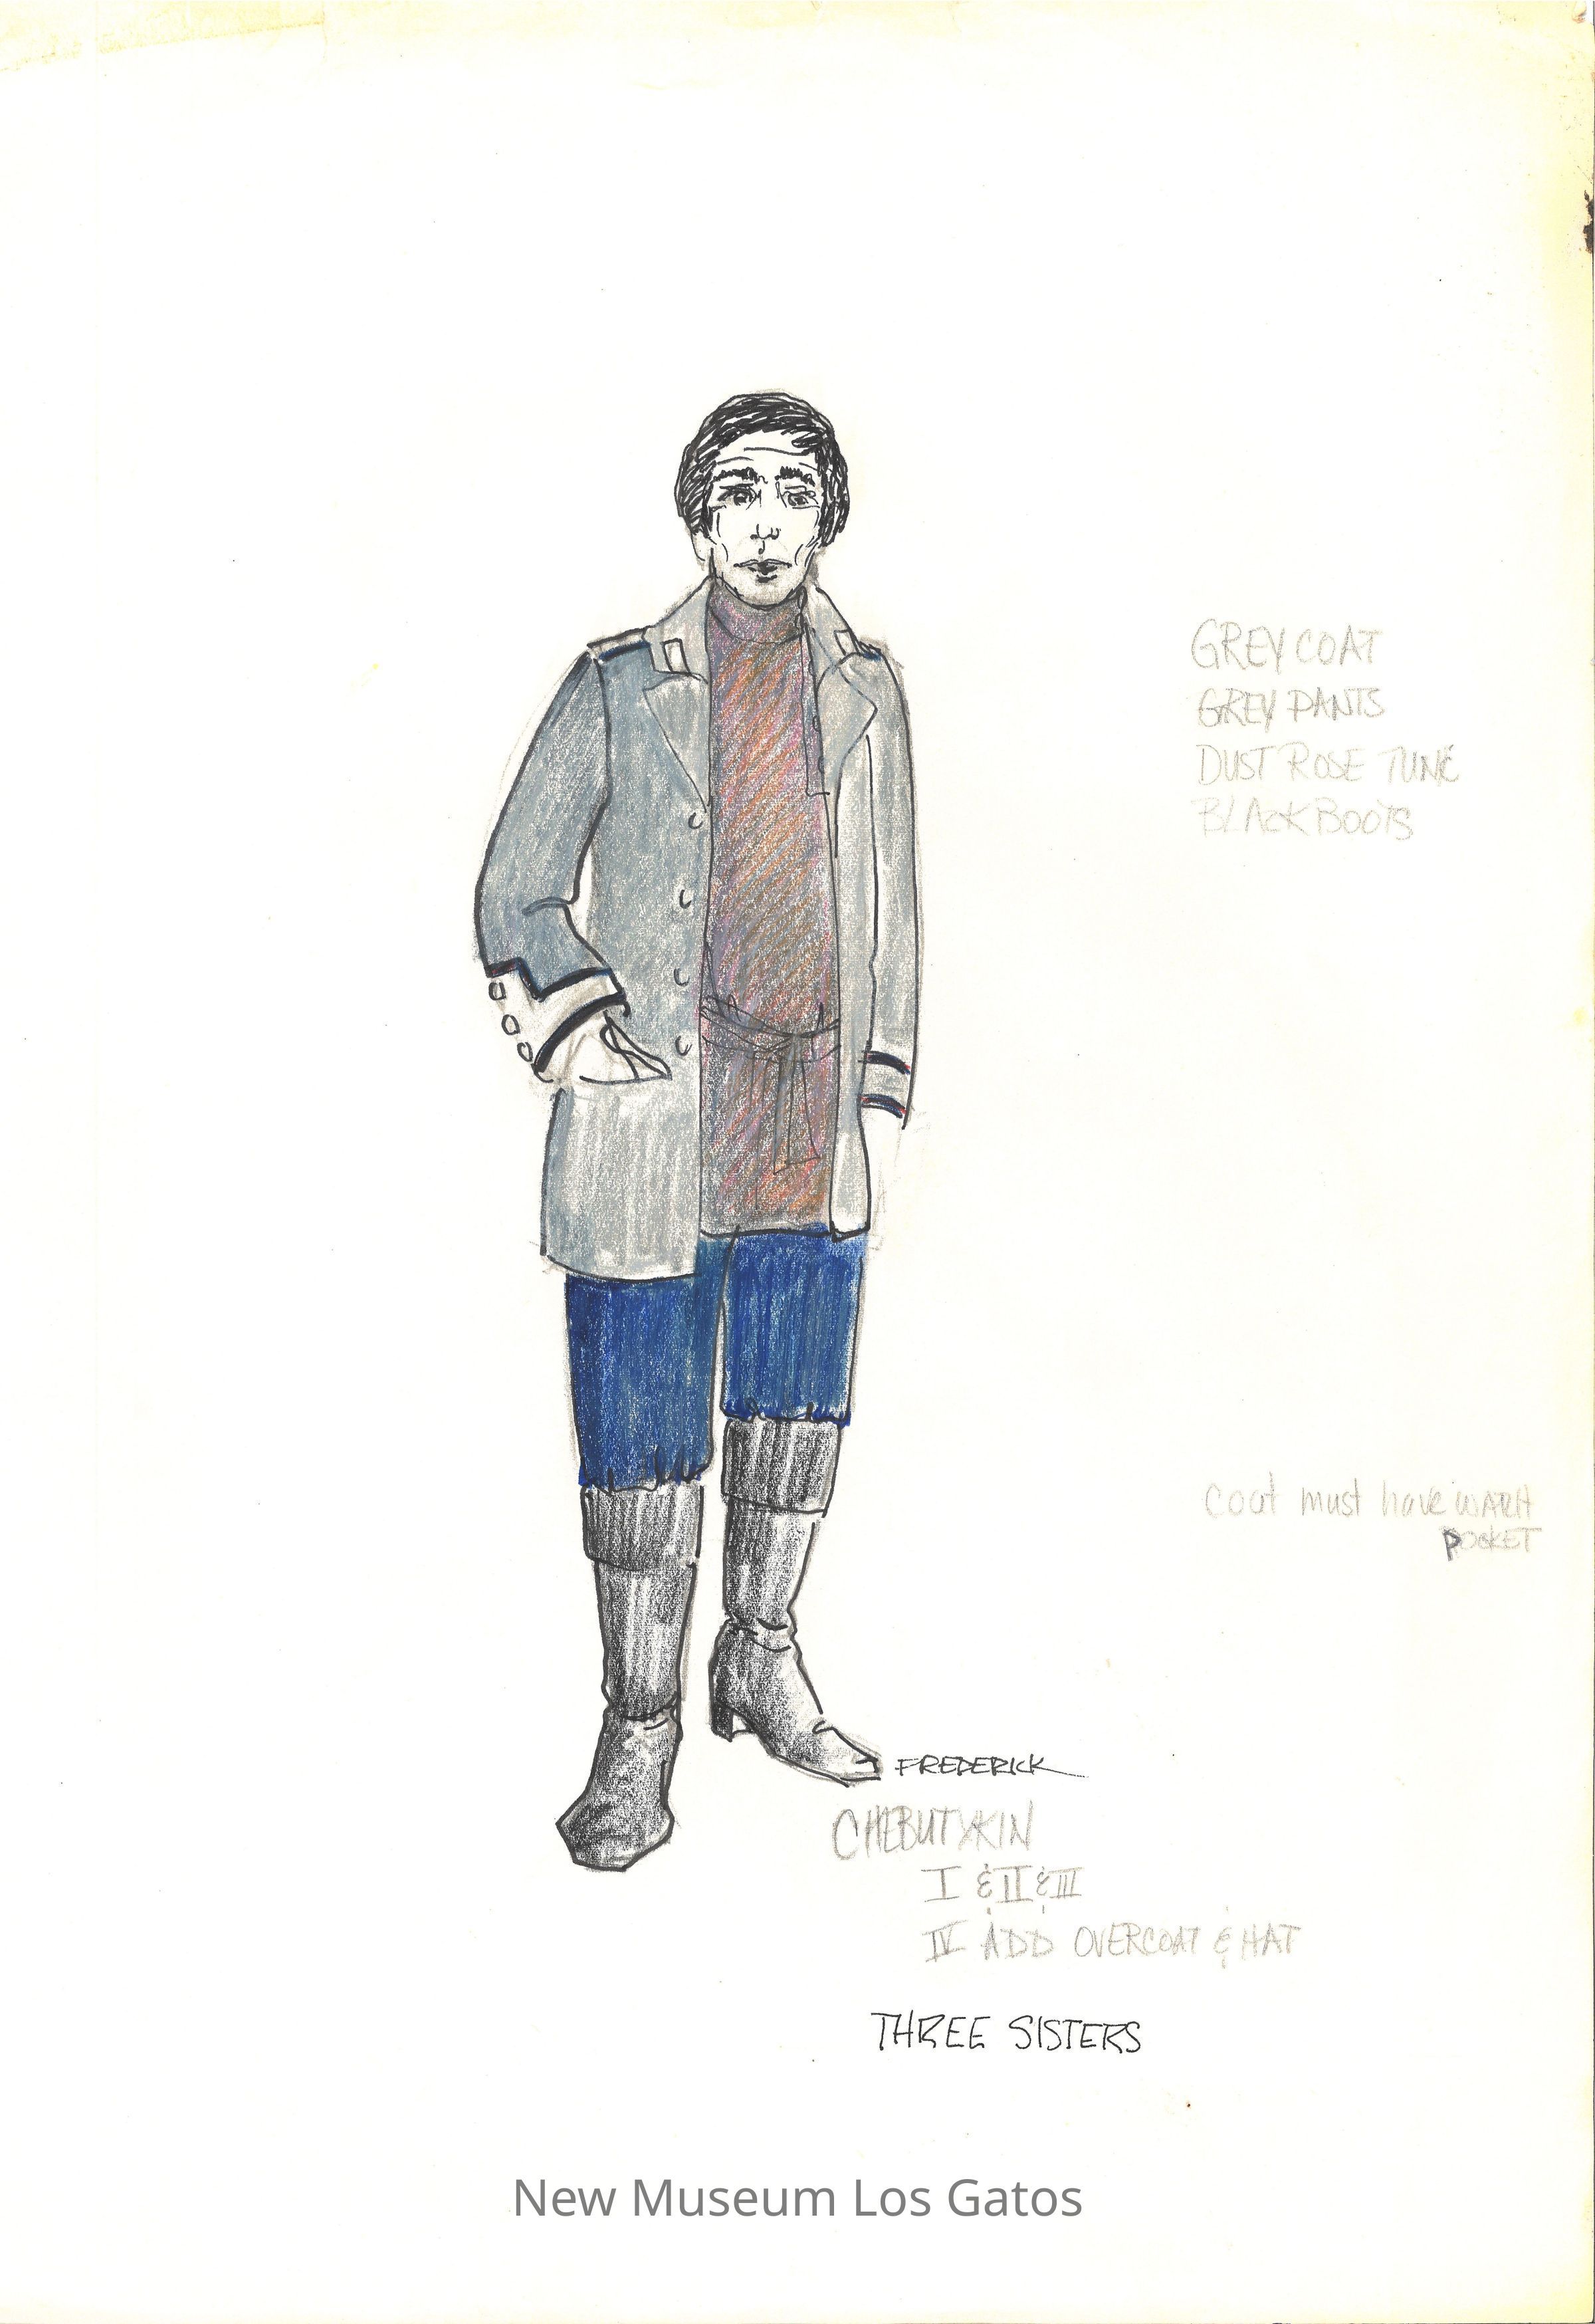 GREY COAT
GREY PANTS
DUST ROSE TUNIC
BLACK BOOTS
Coat must have WATCH
POCKET
FREDERICK
CHEBUTYKIN
I & II & III
IV ADD OVERCOAT & HAT
THREE SISTERS
New Museum Los Gatos